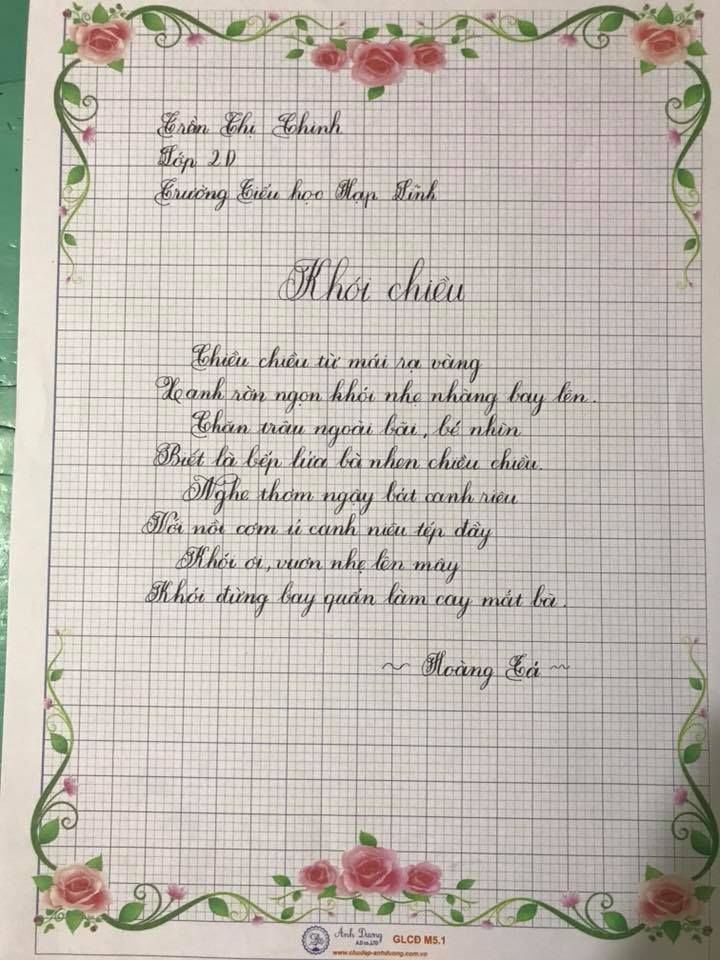 Trần Thị Thinh
Lớp 2D
Trường Tiểu học Hạp Lĩnh
Khói chiều
Chiều chiều từ mái rạ vàng
Xanh rờn ngọn khói nhẹ nhàng bay lên.
Chăn trâu ngoài bãi, bé nhìn
Biết là bếp lửa bà nhen chiều chiều.
Nghe thơm ngậy bát canh riêu
Với nồi cơm ủ canh niêu tép đầy
Khói ơi, vươn nhẹ lên mây
Khói đừng bay quẩn làm cay mắt bà.
~ Hoàng Tá ~
Anh Dương
A.D co.,LTD
GLCĐ M5.1
www.chudep-anhduong.com.vn